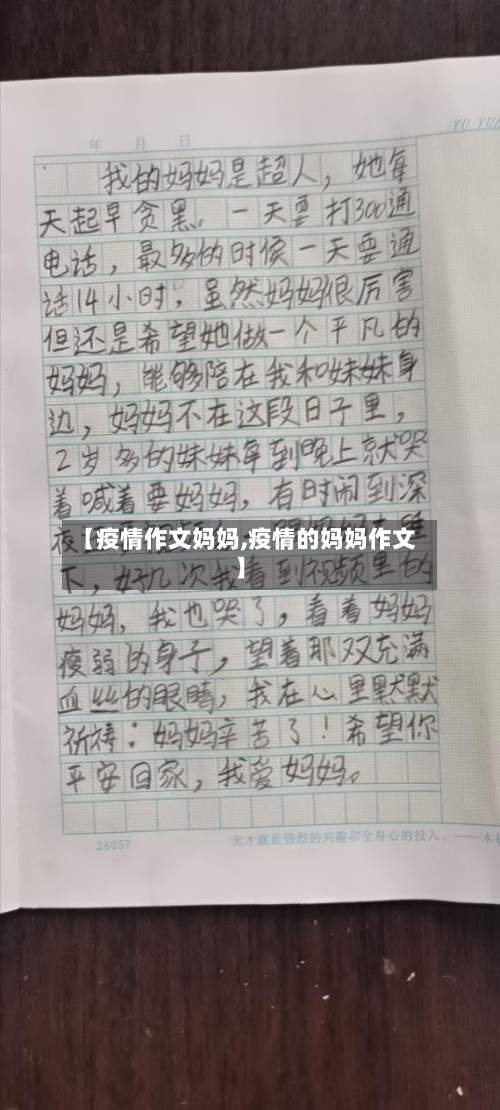 YU YU
年 月 日
我的妈妈是超人，她每
天起早贪黑。一天要打300通
电话，最多的时候一天要通
话14小时，虽然妈妈很厉害
但还是希望她做一个平凡的
妈妈，能够陪在我和妹妹身
边，妈妈不在这段日子里，
2岁多的妹妹每到晚上就哭
着喊着要妈妈，有时闹到深
夜
【疫情作文妈妈,疫情的妈妈作文
】
下，好几次我看到视频里的
妈妈，我也哭了，看着妈妈
瘦弱的身子，望着那双充满
血丝的眼睛，我在心里默默
祈祷：妈妈辛苦了！希望你
平安回家，我爱妈妈。
28057
天才就是强烈的兴趣和全身心的投入。——木